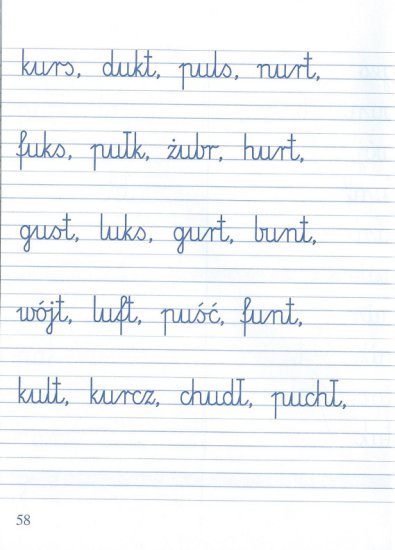 kurs, dukt, puls, nurt,
fuks, pułk, żubr, hurt,
gust, luks, gurt, bunt,
wójt, luft, puść, funt,
kult, kurcz, chudł, puchł,
58